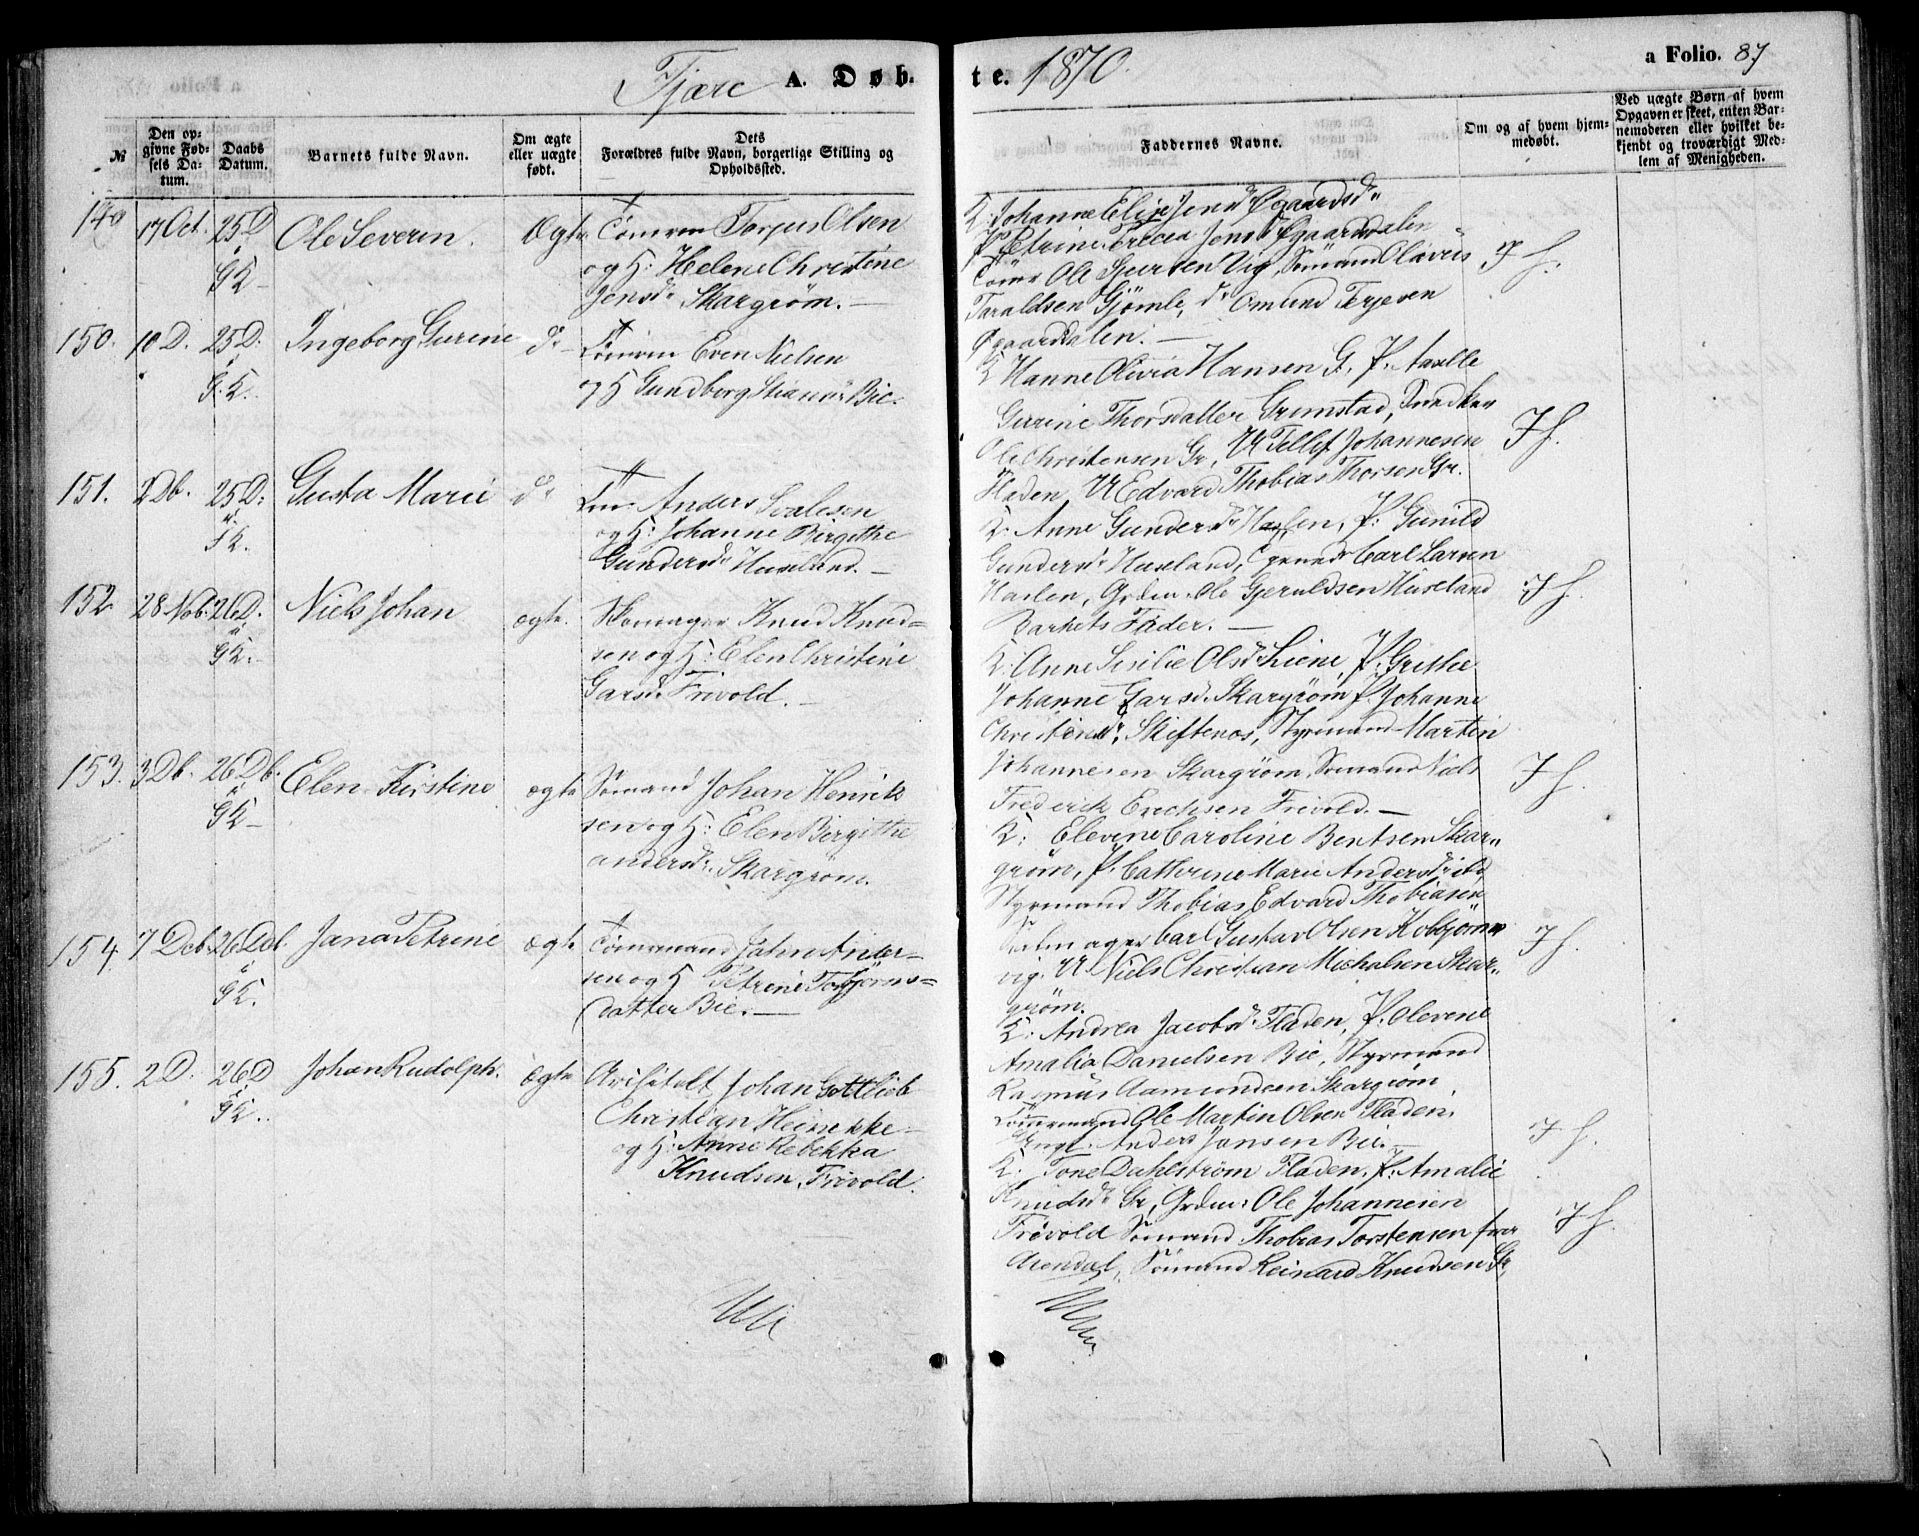 Fjære A. Døb- te. 1870.
a Folio. 87
№
Den op-
givne Fød-
sels Da-
tum.
Daabs
Datum.
Barnets fulde Navn.
Om ægte
eller uægte
født.
Dets
Forældres fulde Navn, borgerlige Stilling og
Opholdssted.
Faddernes Navne.
Om og af hvem hjem-
medøbt.
Ved uægte Børn af hvem
Opgaven er skeet, enten Bar-
nemoderen eller hvilket be-
kjendt og troværdigt Med-
lem af Menigheden.
149 17 Oct. 25 D. i GK- Ole Severin. Ægte
Tømrm Torjus Olsen
og H: Helene Christine
Jensdr Skargrøm. —
K. Johanne Elise Jensdr Øgaardsdn
Ps Petrine Jensdr Øgaardsdalen
Tømr Ole Sjursen Vig, Sømand Olavus
Taraldsen Gjømle, dr Omund Terjesen
Øgaardsdalen. —
J f.
150. 10 D. 25 D. i G.K. Ingeborg Gurine dr
Tømrm Even Nielsen
og H Gundborg Bie.
K Hanne Olivia Hansen G, P. Aaselle
Gurine Thorsdatter Grimstad, Snedker
Ole Christensen Gr, U Tellef Johannesen
Fladen, U Edvard Thobias Thorsen Gr.
J f.
151. 2 Db. 25 D: i FK. Gusta Marie dr
Anders
og H: Johanne Birgithe
Gundersdr Huseland. —
K. Anne Gundersdr Haslen, P: Gunild
Gundersdr Huseland, Carl Larsen
Haslen, Grdm. Ole Gjeruldsen Huseland
Barnets Fader. —
J f.
152. 28 Nob: 26 D. i GK.- Niels Johan ægte.
Skomager Knud Knud-
sen og H: Elen Christine
Garsdr Frivold. —
K. Anne Sisilie Olsdr Liene, P. Grithe
Johanne Garsdr. Skargrøm P. Johanne
Skiftenes, Styrmand Martin
Johannesen Skargrøm, Sømand Niels
Frederik Erichsen Frivold. —
J f.
153. 3 Db. 26 Db. i GK- Elen Kirstine ægte
Sømand Johan Henrik
sen og H: Elen Birgithe
Andersdr. Skargrøm.
K: Elevine Caroline Bentsen Skar-
grøm, P. Cathrine Marie Andersdr ibd,
Styrmand Thobias Edvard Thobiasen
Carl Gustav Olsen Kobjørns
vig. U Niels Christian Michalsen Skar-
grøm.
J f.
154. 7 Deb. 26 Deb. i GK. Jana Petrine ægte
Tømmermand Jahn Ander-
sen og H Petrine Torbjørns-
datter Bie. —
K. Andrea Jacobsdr Fladen, P. Olevene
Amalia Danielsen Bie, Styrmand
Rasmus Aamundsen Skargrøm,
Tømrmand Ole Martin Olsen Fladen,
Ungk. Anders Jansen Bie. —
J f.
155. 2 D. 26 D i GK.. Johan Rudolph. Ægte
Johan Gottlieb
Christian Heinekke
og H: Anne Rebekka
Knudsen, Frivold.
K. Tone Dahlstrøm Fladen, P. Amalie
Knudsdr Gr, Grdm: Ole Johannesen
Frøvold Sømand Thobias Torstensen fra
Arendal, Sømand Reinard Knudsen Gr,
J f.